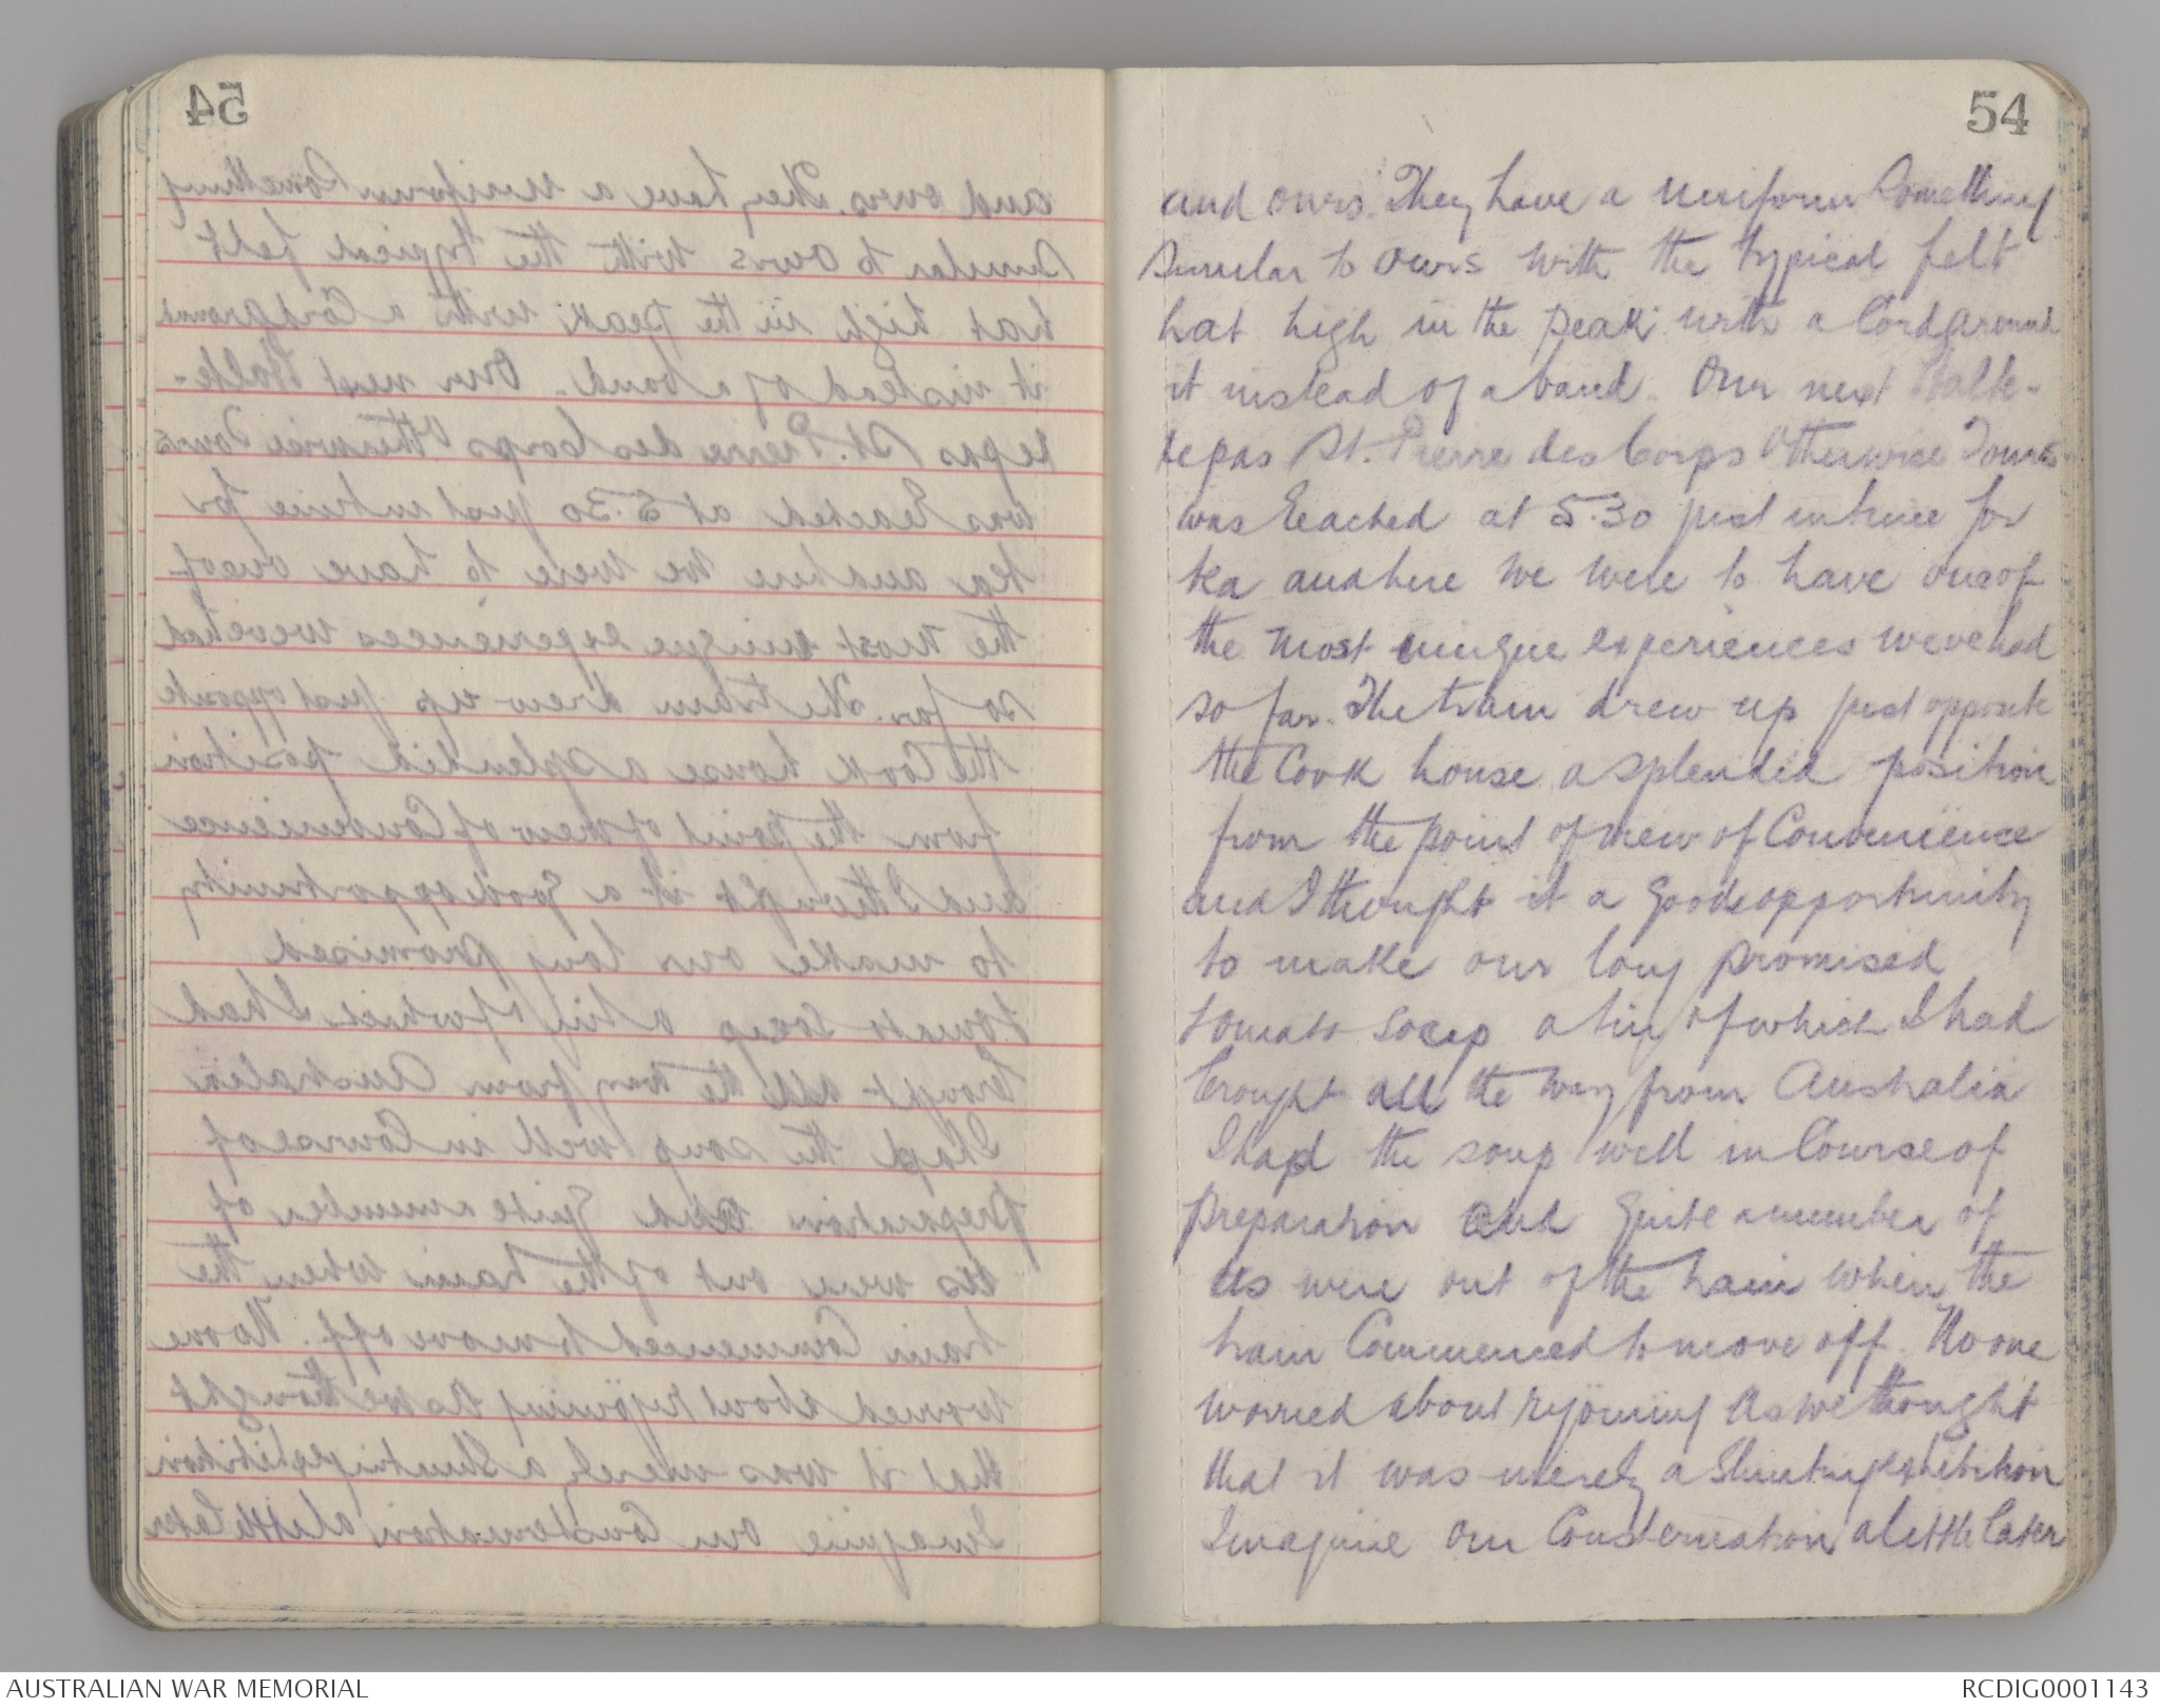 54
and ours. They have a uniform something
similar to ours with the typical felt
hat high in the peak with a Cord around
it instead of a band. Our next Halte-
repas St. Pierre des Corps Otherwise Tours
was reached at 5.30 just in time for
tea and here we were to have one of
the most unique experiences weve had
so far. The train drew up just opposite
the Cook house a splendid position
from the point of view of Convenience
and I thought it a good opportunity
to make our long promised
tomato soup a tin of which I had
brought all the way from Australia
I had the soup well in Course of
preparation and quite a number of
us were out of the train when the
train Commenced to move off. No one
worried about rejoining as we thought
that it was merely a Shunting exhibition
Imagine our Consternation a little later
AUSTRALIAN WAR MEMORIAL
RCDIG0001143